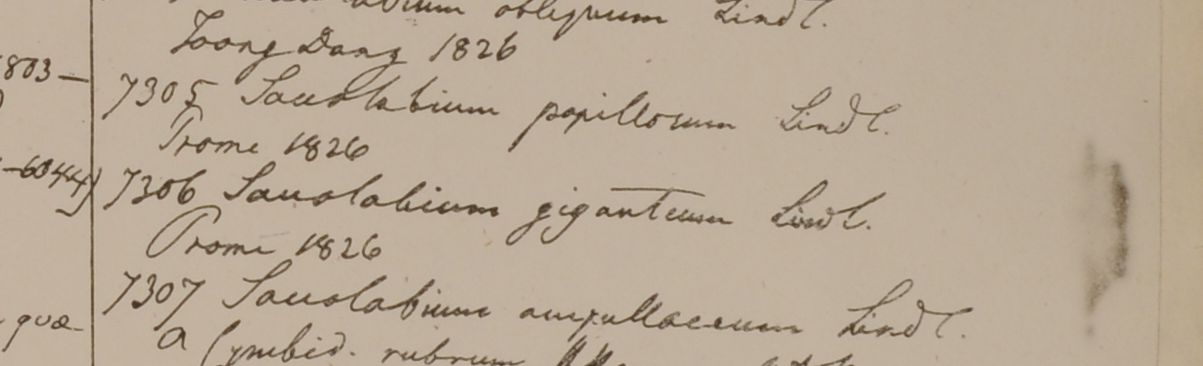 obliquum Lindl.
Toong Dang 1826
1803—
7305 Saccolabium papillosum Lindl.
Prome 1826
-6044)
7306 Saccolabium giganteum Lindl.
Prome 1826
7307 Saccolabium ampullaceum Lindl.
quæ
a Cymbid. rubrum